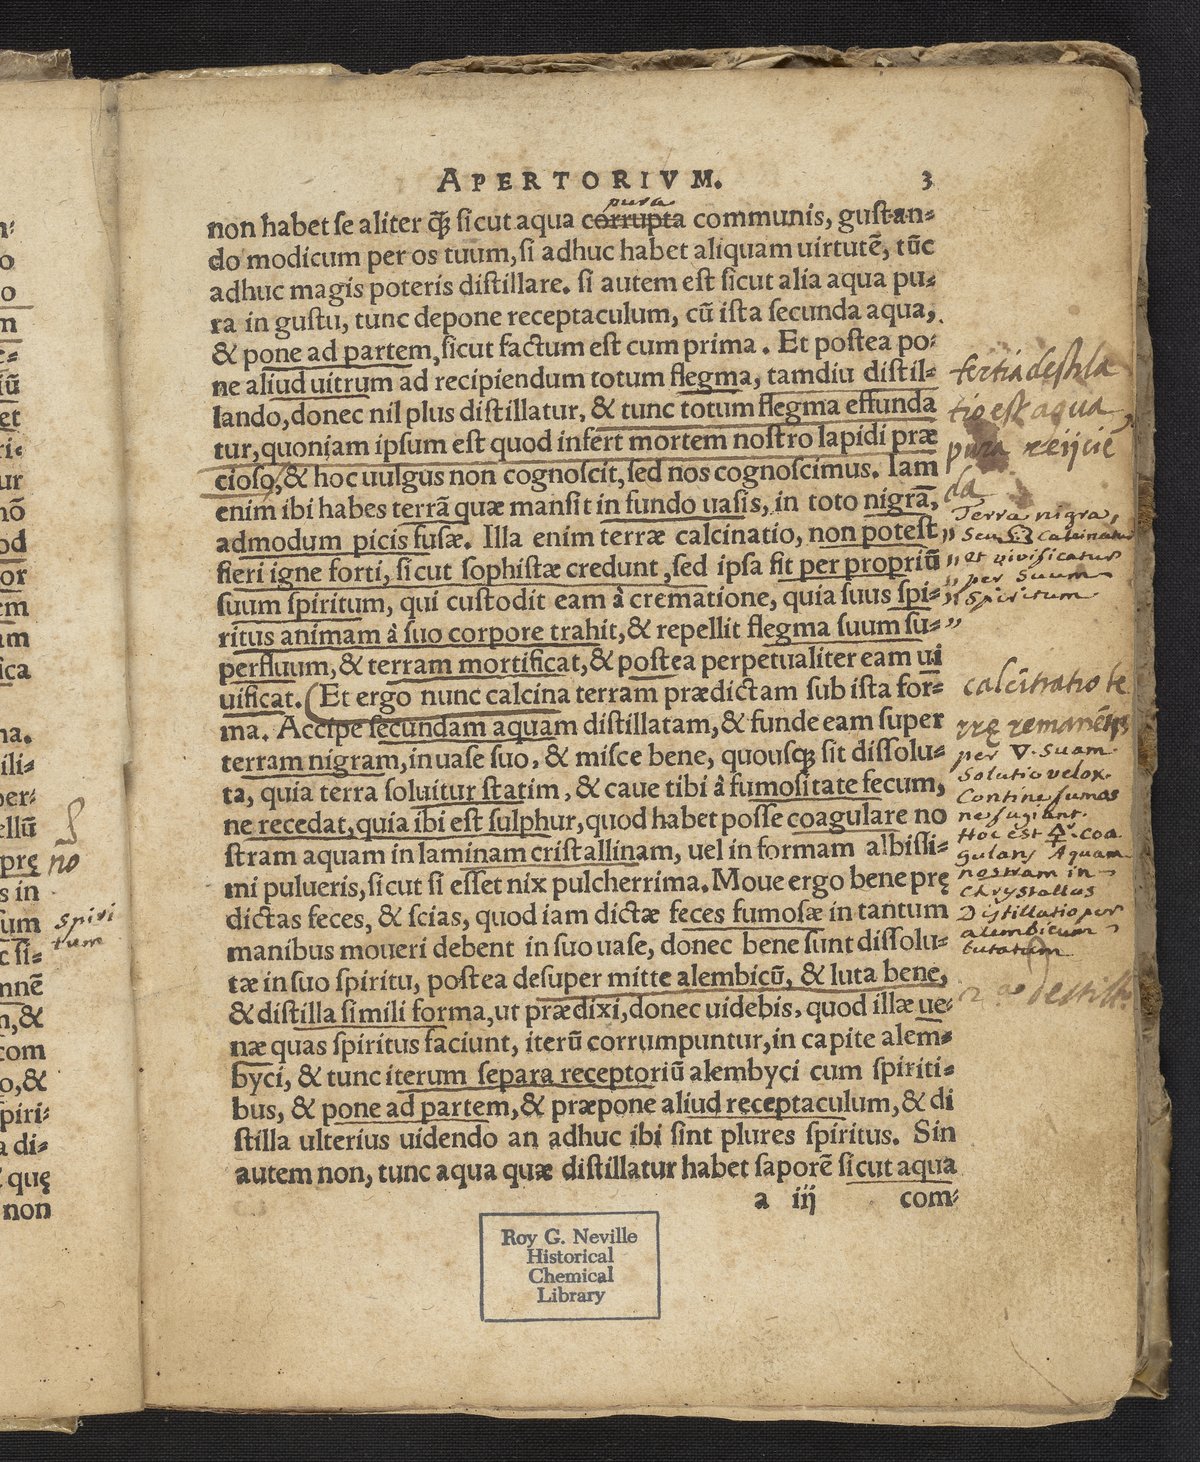 APERTORIVM. 3
pura
non habet se aliter q̃ȝ sicut aqua corrupta communis, gustan-
do modicum per os tuum, si adhuc habet aliquam uirtutẽ, tũc
adhuc magis poteris distillare. si autem est sicut alia aqua pu-
ra in gustu, tunc depone receptaculum, cũ ista secunda aqua,
& pone ad partem, sicut factum est cum prima. Et postea po-
ne aliud uitrum ad recipiendum totum flegma, tamdiu distil-
lando, donec nil plus distillatur, & tunc totum flegma effunda
tur, quoniam ipsum est quod infert mortem nostro lapidi præ
cioso, & hoc uulgus non cognoscit, sed nos cognoscimus. Iam
enim ibi habes terrã quæ mansit in fundo uasis, in toto nigrã,
admodum picis fusæ. Illa enim terræ calcinatio, non potest
fieri igne forti, sicut sophistæ credunt, sed ipsa fit per propriũ
suum spiritum, qui custodit eam à crematione, quia suus spi-
ritus animam à suo corpore trahit, & repellit flegma suum su-
perfluum, & terram mortificat, & postea perpetualiter eam ui
uificat. (Et ergo nunc calcina terram prædictam sub ista for-
ma. Accipe secundam aquam distillatam, & funde eam super
terram nigram, in uase suo, & misce bene, quousqȝ sit dissolu-
ta, quia terra soluitur statim, & caue tibi à fumositate fecum,
ne recedat, quia ibi est sulphur, quod habet posse coagulare no
stram aquam in laminam cristallinam, uel in formam albissi-
mi pulueris, sicut si esset nix pulcherrima. Moue ergo bene prę
dictas feces, & scias, quod iam dictæ feces fumosæ in tantum
manibus moueri debent in suo uase, donec bene sunt dissolu-
tæ in suo spiritu, postea desuper mitte alembicũ, & luta bene,
& distilla simili forma, ut prædixi, donec uidebis, quod illæ ue-
næ quas spiritus faciunt, iterũ corrumpuntur, in capite alem-
byci, & tunc iterum separa receptoriũ alembyci cum spiriti-
bus, & pone ad partem, & præpone aliud receptaculum, & di
stilla ulterius uidendo an adhuc ibi sint plures spiritus. Sin
autem non, tunc aqua quæ distillatur habet saporẽ sicut aqua
a iij com-
tertia destila
tio est aqua
pura reijcie
da
Terra nigra,
seu calcinatur
et vivificatur
per suum
spiritum
calcinatio te
rrę remanẽtis
per ∇. suam
Solutio velox.
Contine fumos
ne fugiant.
Hoc est 🜍 coa
gulans Aquam
nostram in
Chrystallos
Distillatio per
alembicum
lutatum
2 a destill
no
spiri
tum
Roy G. Neville
Historical
Chemical
Library
n-
o
o
m
e-
iũ
et
ri-
ur
nõ
od
or
em
am
ica
na.
ili-
per-
ellũ
prę
s in
sum
c si-
mnẽ
n, &
com
o, &
piri-
a di-
quę
non